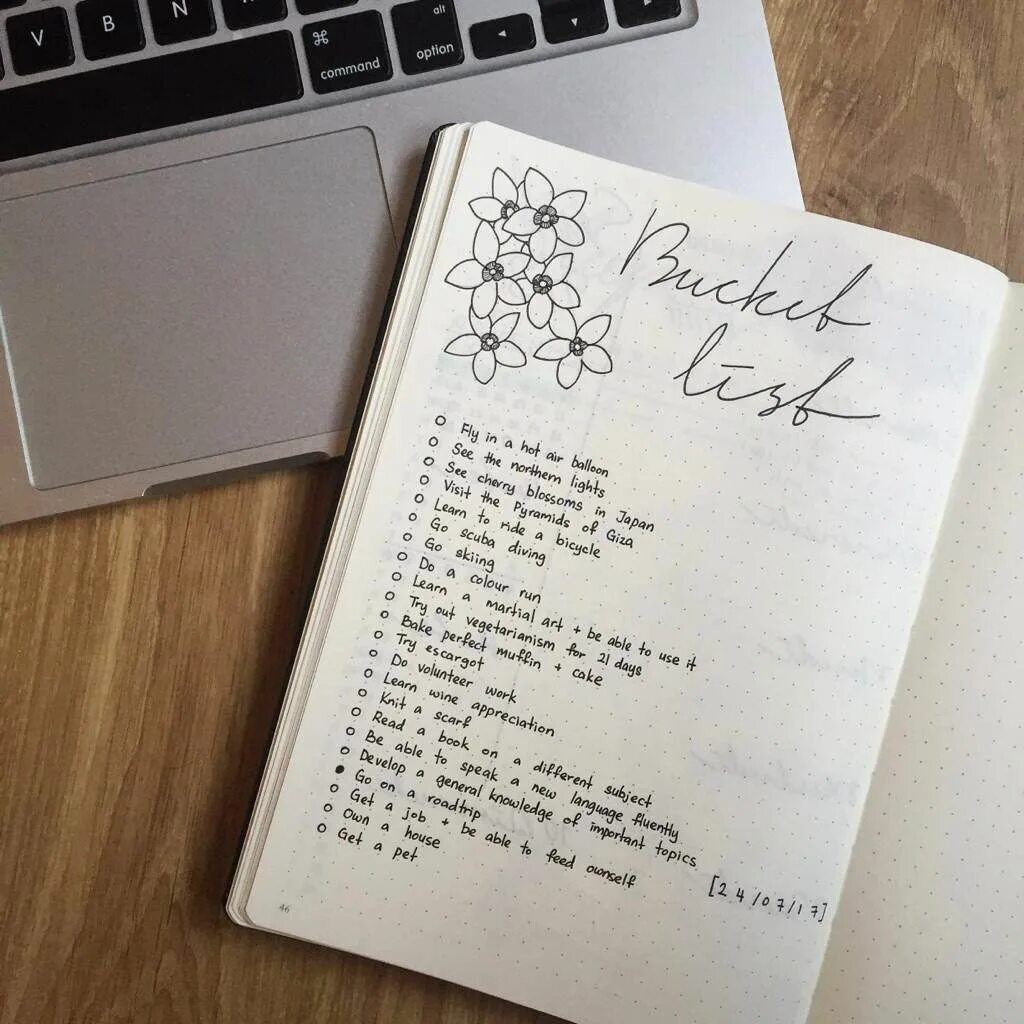 V B N
⌘ command
alt option
◄ ▼ ►
Bucket
list
Fly in a hot air balloon
See the northern lights
See cherry blossoms in Japan
Visit the Pyramids of Giza
Learn to ride a bicycle
Go scuba diving
Go skiing
Do a colour run
Learn a martial art + be able to use it
Try out vegetarianism for 21 days
Bake perfect muffin + cake
Try escargot
Do volunteer work
Learn wine appreciation
Knit a scarf
Read a book on a different subject
Be able to speak a new language fluently
Develop a general knowledge of important topics
Go on a roadtrip
Get a job + be able to feed ownself
Own a house
Get a pet
[24/07/17]
46